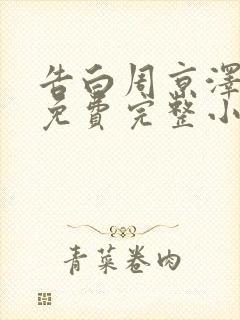 告白周京澤
免費完整小
青菜卷肉